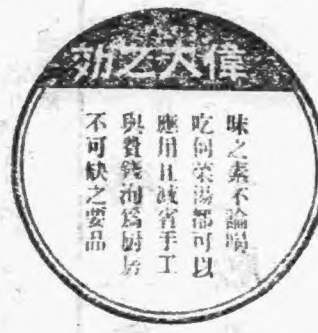 偉大之効
味之素不論喝
吃何菜湯都可以
應用且減省手工
與費錢洵爲厨房
不可缺之要品